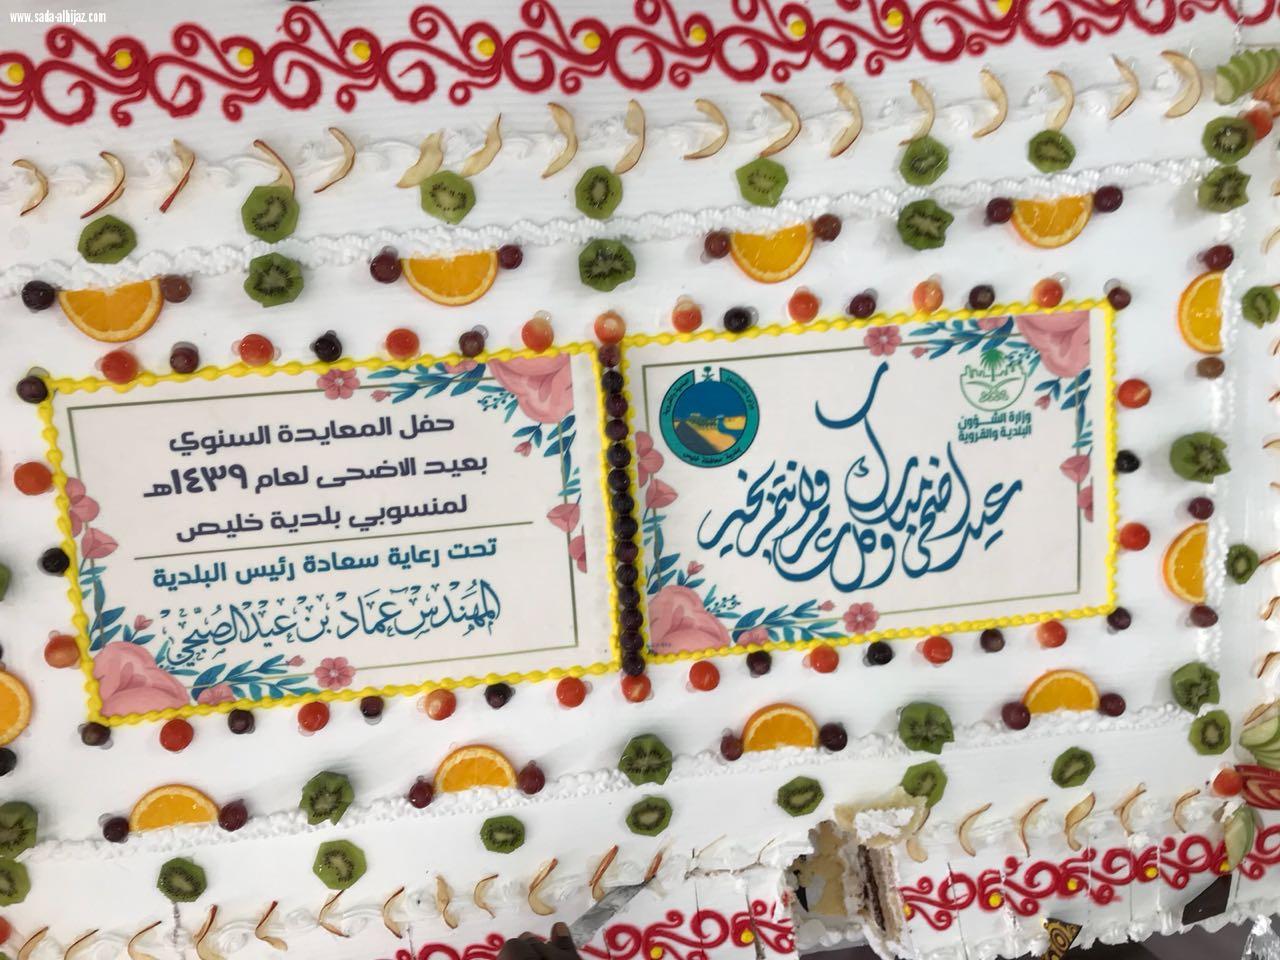 www.sada-alhijaz.com
وزارة الشؤون
البلدية والقروية
عيد اضحى مبارك
وكل عام وانتم بخير
حفل المعايدة السنوي
بعيد الاضحى لعام ١٤٣٩هـ
لمنسوبي بلدية خليص
تحت رعاية سعادة رئيس البلدية
المهندس عماد بن عيد الصبحي